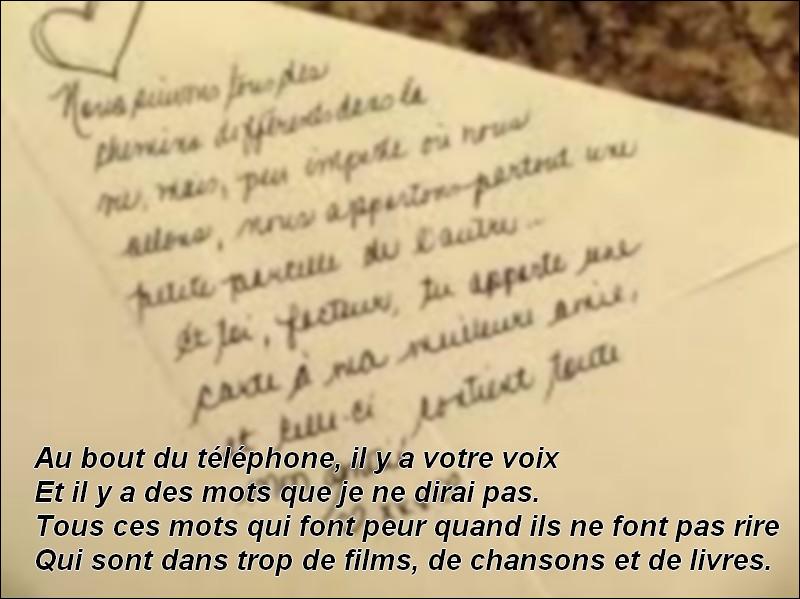 Nous suivons tous des
chemins différents dans la
vie, mais, peu importe où nous
allons, nous apportons partout une
petite parcelle de l'autre...
et toi, facteur, tu apporte une
carte à ma meilleure amie,
et celle-ci contient toute
mon
Au bout du téléphone, il y a votre voix
Et il y a des mots que je ne dirai pas.
Tous ces mots qui font peur quand ils ne font pas rire
Qui sont dans trop de films, de chansons et de livres.